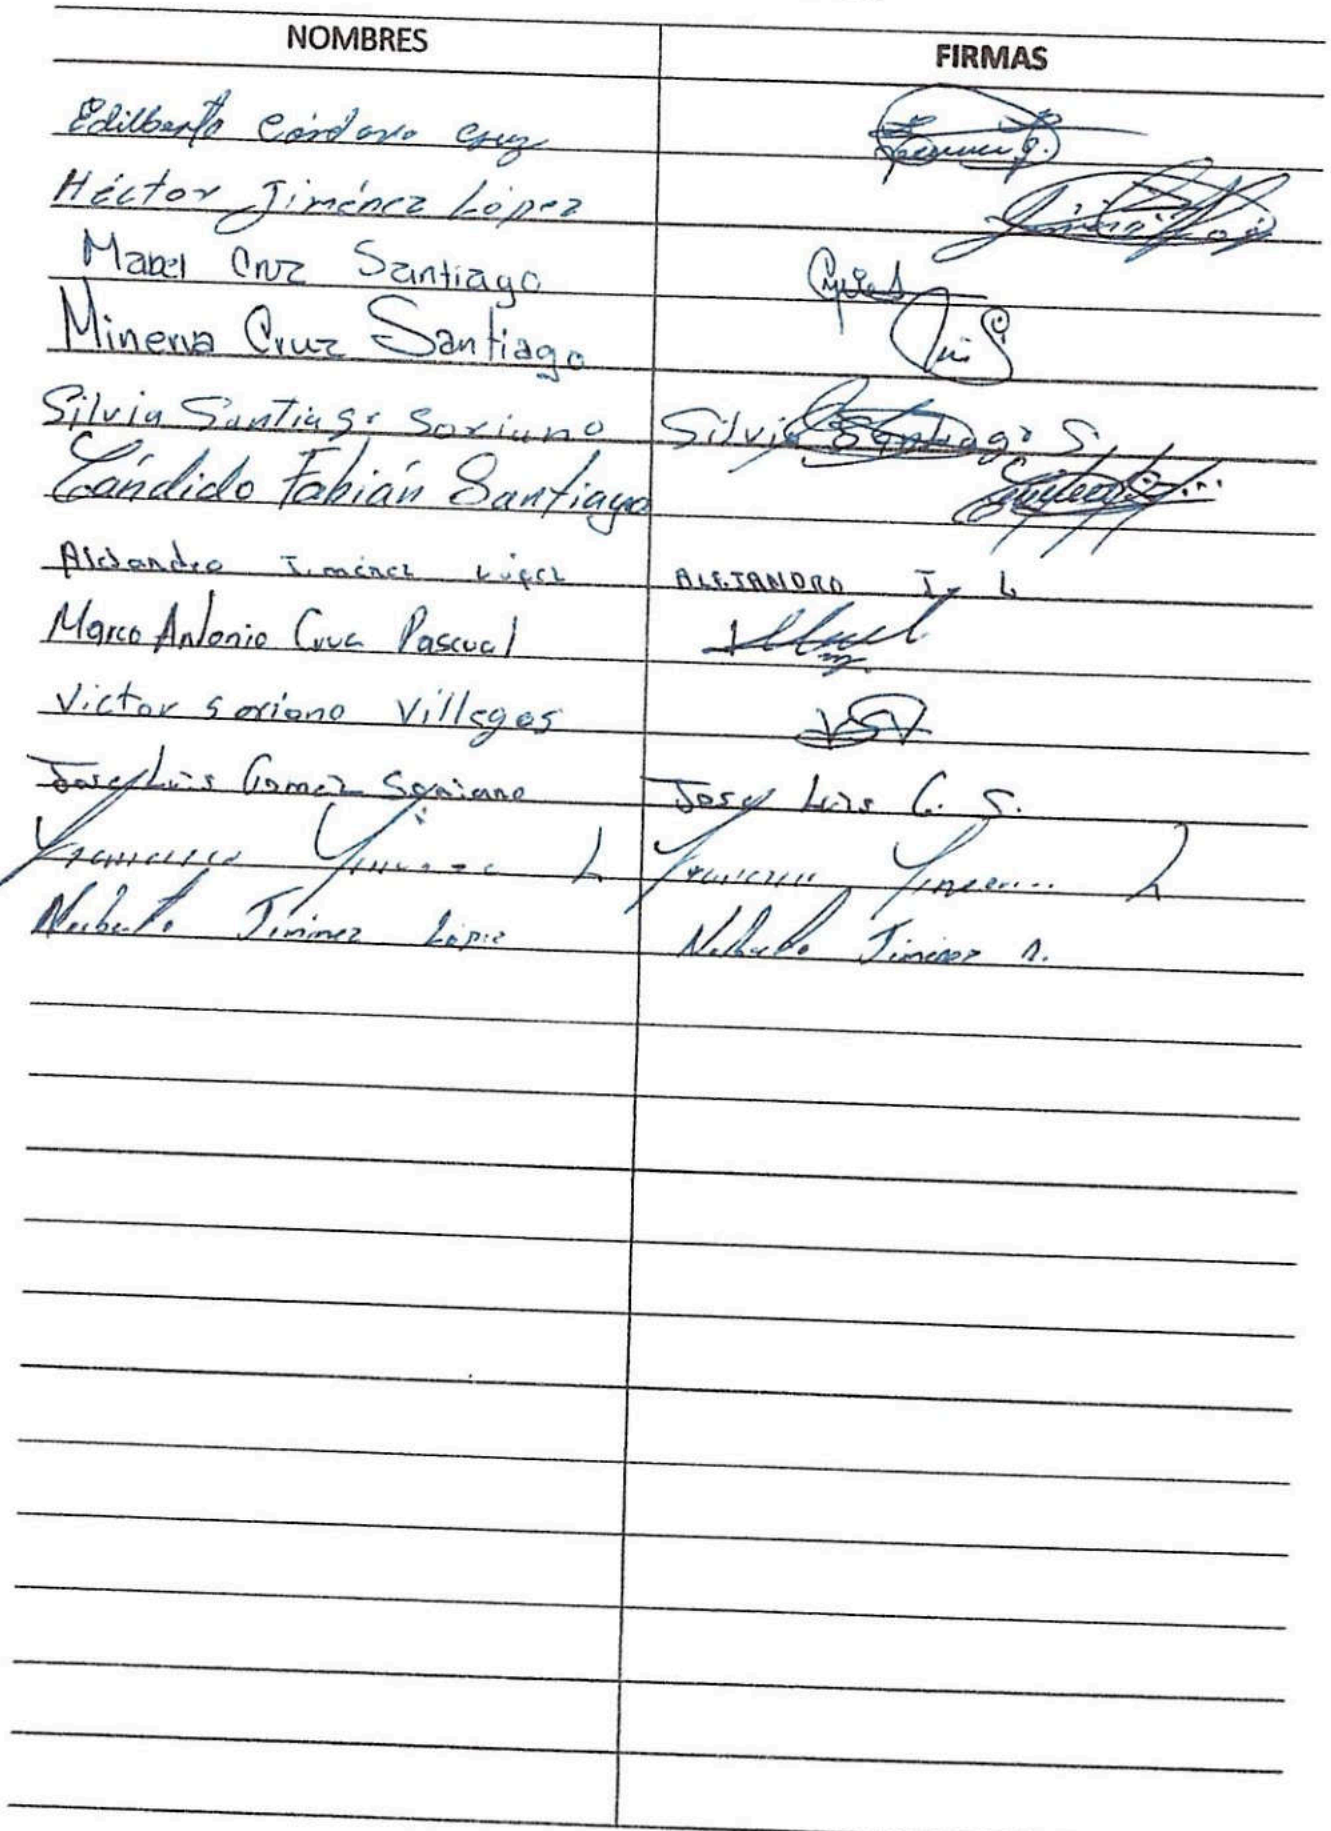 NOMBRES FIRMAS
Edilberto Córdova Cruz
Héctor Jiménez López
Mabel Cruz Santiago
Minerva Cruz Santiago
Silvia Santiago Soriano Silvia Santiago S.
Cándido Fabián Santiago
Alejandro Jiménez López ALEJANDRO J. L
Marco Antonio Cruz Pascual
Victor Soriano Villegas VSV
Jose Luis Gomez Soriano Jose Luis G. S.
Francisco L Francisco L
Jiménez López Jiménez